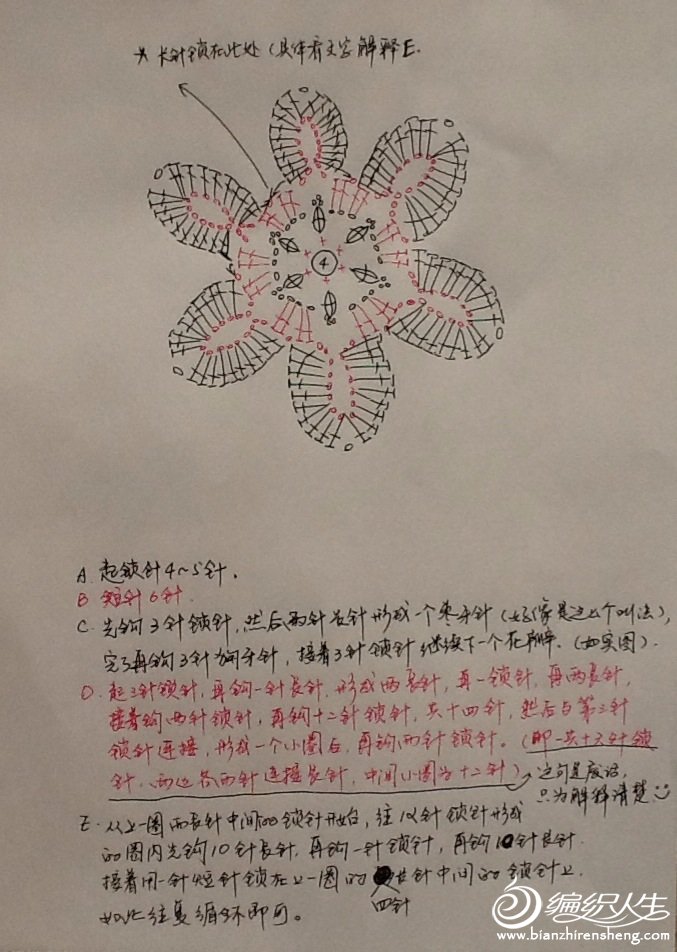 * 长针锁在此处 (具体看文字解释E.
4
A. 起锁针4~5针.
B 短针6针.
C. 先钩3针锁针, 然后两针长针形成一个枣形针 (好像是这么个叫法),
完了再钩3针狗牙针, 接着3针锁针继续下一个花瓣. (如实图).
D. 起3针锁针, 再钩一针长针, 形成两长针, 再一锁针, 再两长针,
接着钩两针锁针, 再钩十二针锁针, 共十四针, 然后与第三针
锁针连接, 形成一个小圈后, 再钩两针锁针. (即一共十六针锁
针, 两边各两针连接长针, 中间小圈为十二针) 这句是废话,
只为解释清楚
E. 从上一圈两长针中间的锁针开始, 往12针锁针形成
的圈内先钩10针长针, 再钩一针锁针, 再钩10针长针.
接着用一针短针锁在上一圈的长针中间的锁针上.
四针
如此往复循环即可。
编织人生
www.bianzhirensheng.com